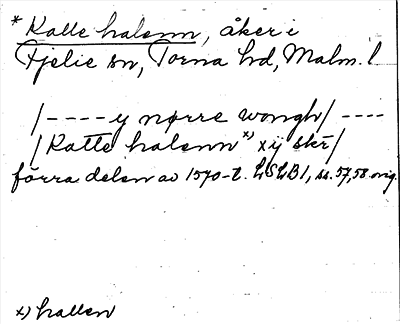 * Katte halsnn, åker i
Fjelie sn, Torna hd, Malm. l
/---- y nørre wongh/ ----
/ Katte halsnn x) xij skr/
förra delen av 1570-t. LSLB1, ss. 57, 58 orig.
x) hallsn